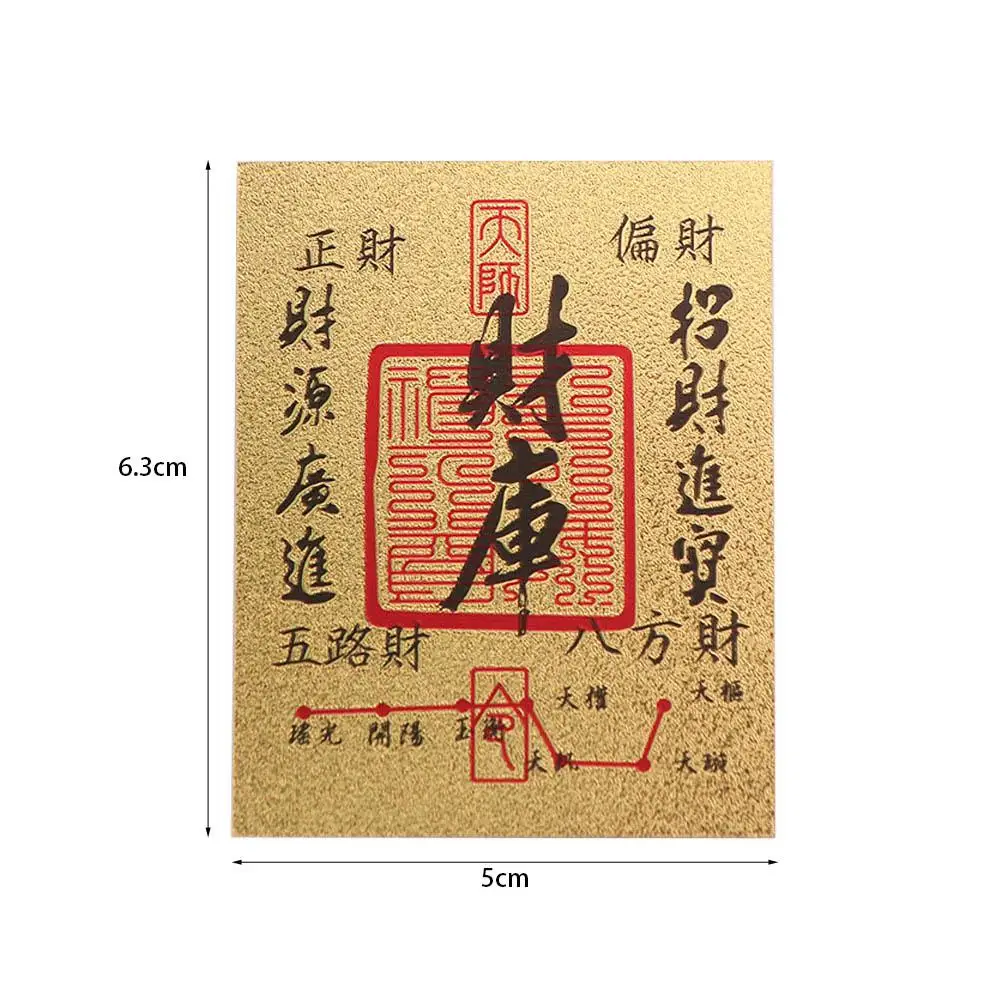 天師
正財
偏財
財庫
招財進寶
財源廣進
五路財
八方財
令
天權
天樞
瑤光
開陽
玉衡
天璇
6.3cm
5cm